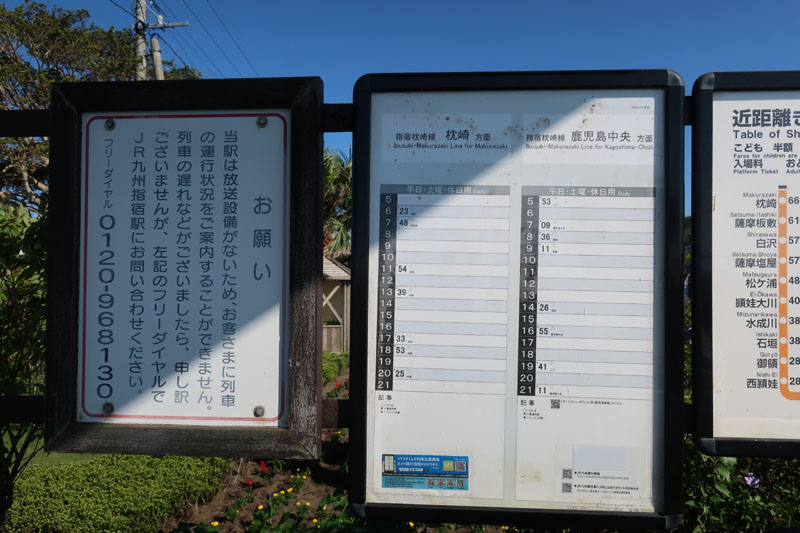 お願い
当駅は放送設備がないため、お客さまに列車
の運行状況をご案内することができません。
列車の遅れなどがございましたら、申し訳
ございませんが、左記のフリーダイヤルで
JR九州指宿駅にお問い合わせください。
フリーダイヤル 0120-968130
指宿枕崎線 枕崎 方面
Ibusuki-Makurazaki Line for Makurazaki
平日・土曜・休日用 Daily
5
6 23
7 48
8
9
10
11 54
12
13 39
14
15
16
17 33
18 53
19
20 25
21
記事
指宿枕崎線 鹿児島中央 方面
Ibusuki-Makurazaki Line for Kagoshima-Chūō
平日・土曜・休日用 Daily
5 53
6
7 09
8 36
9 11
10
11
12
13
14 26
15
16 55
17
18
19 41
20
21 11
記事
近距離き
Table of Sh
こども 半額
Fares for children are
入場料 お
Platform Ticket Adult
Makurazaki
枕崎 66
Satsuma-Itashiki
薩摩板敷 61
Shirasawa
白沢 57
Satsuma-Shioya
薩摩塩屋 57
Matsugaura
松ケ浦 48
Ei-Ōkawa
頴娃大川 40
Mizunarikawa
水成川 38
Ishikaki
石垣 38
Goryō
御領 28
Nishi Ei
西頴娃 28